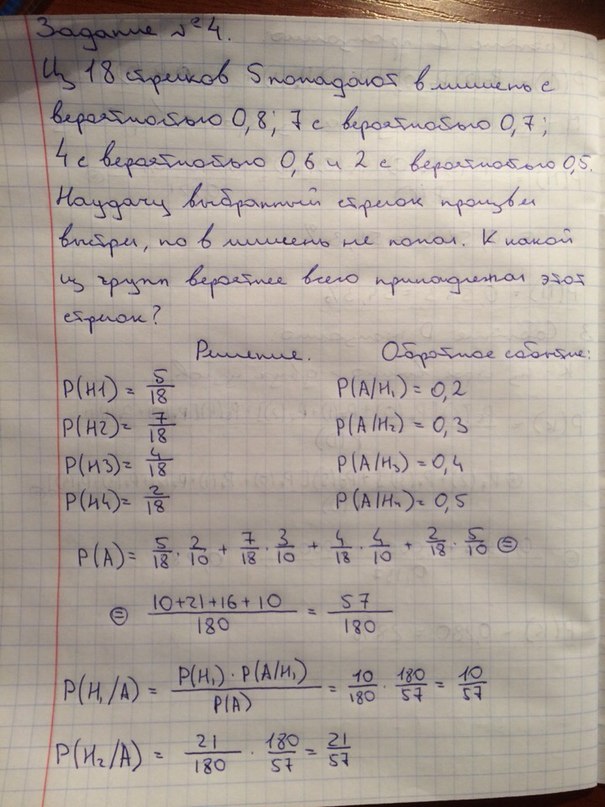 Задание №4.
Из 18 стрелков 5 попадают в мишень с
вероятностью 0,8; 7 с вероятностью 0,7;
4 с вероятностью 0,6 и 2 с вероятностью 0,5.
Наудачу выбранный стрелок произвел
выстрел, но в мишень не попал. К какой
из групп вероятнее всего принадлежал этот
стрелок?
Решение. Обратное событие:
P(H1) = 5/18 P(A/H₁) = 0,2
P(H2) = 7/18 P(A/H₂) = 0,3
P(H3) = 4/18 P(A/H₃) = 0,4
P(H4) = 2/18 P(A/H₄) = 0,5
P(A) = 5/18 · 2/10 + 7/18 · 3/10 + 4/18 · 4/10 + 2/18 · 5/10 ⊜
⊜ (10+21+16+10)/180 = 57/180
P(H₁/A) = (P(H₁) · P(A/H₁))/P(A) = 10/180 · 180/57 = 10/57
P(H₂/A) = 21/180 · 180/57 = 21/57